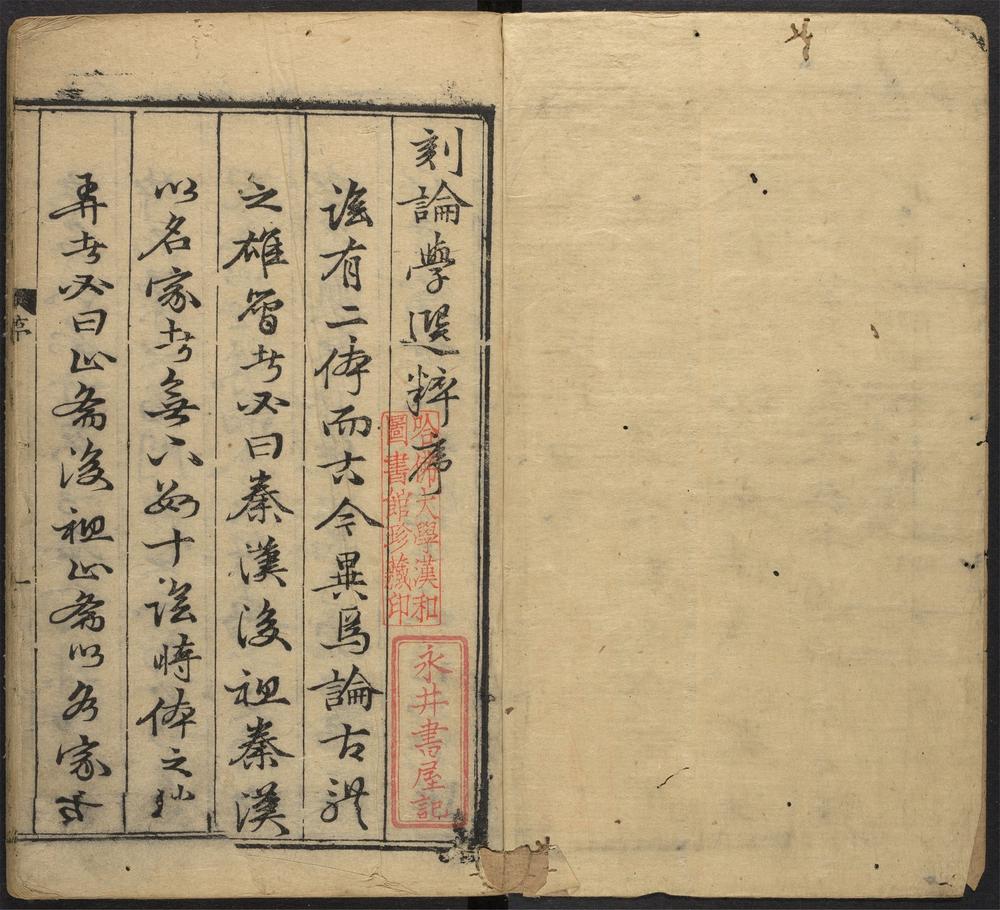 刻論學選粹序
論有二体而古今異焉論古體
之雄者必曰秦漢後祖秦漢
以名家者無數十論時体之
者必曰止斋後祖止斋以名家者
序
一
哈佛大學漢和
圖書館珍藏印
永井書屋記